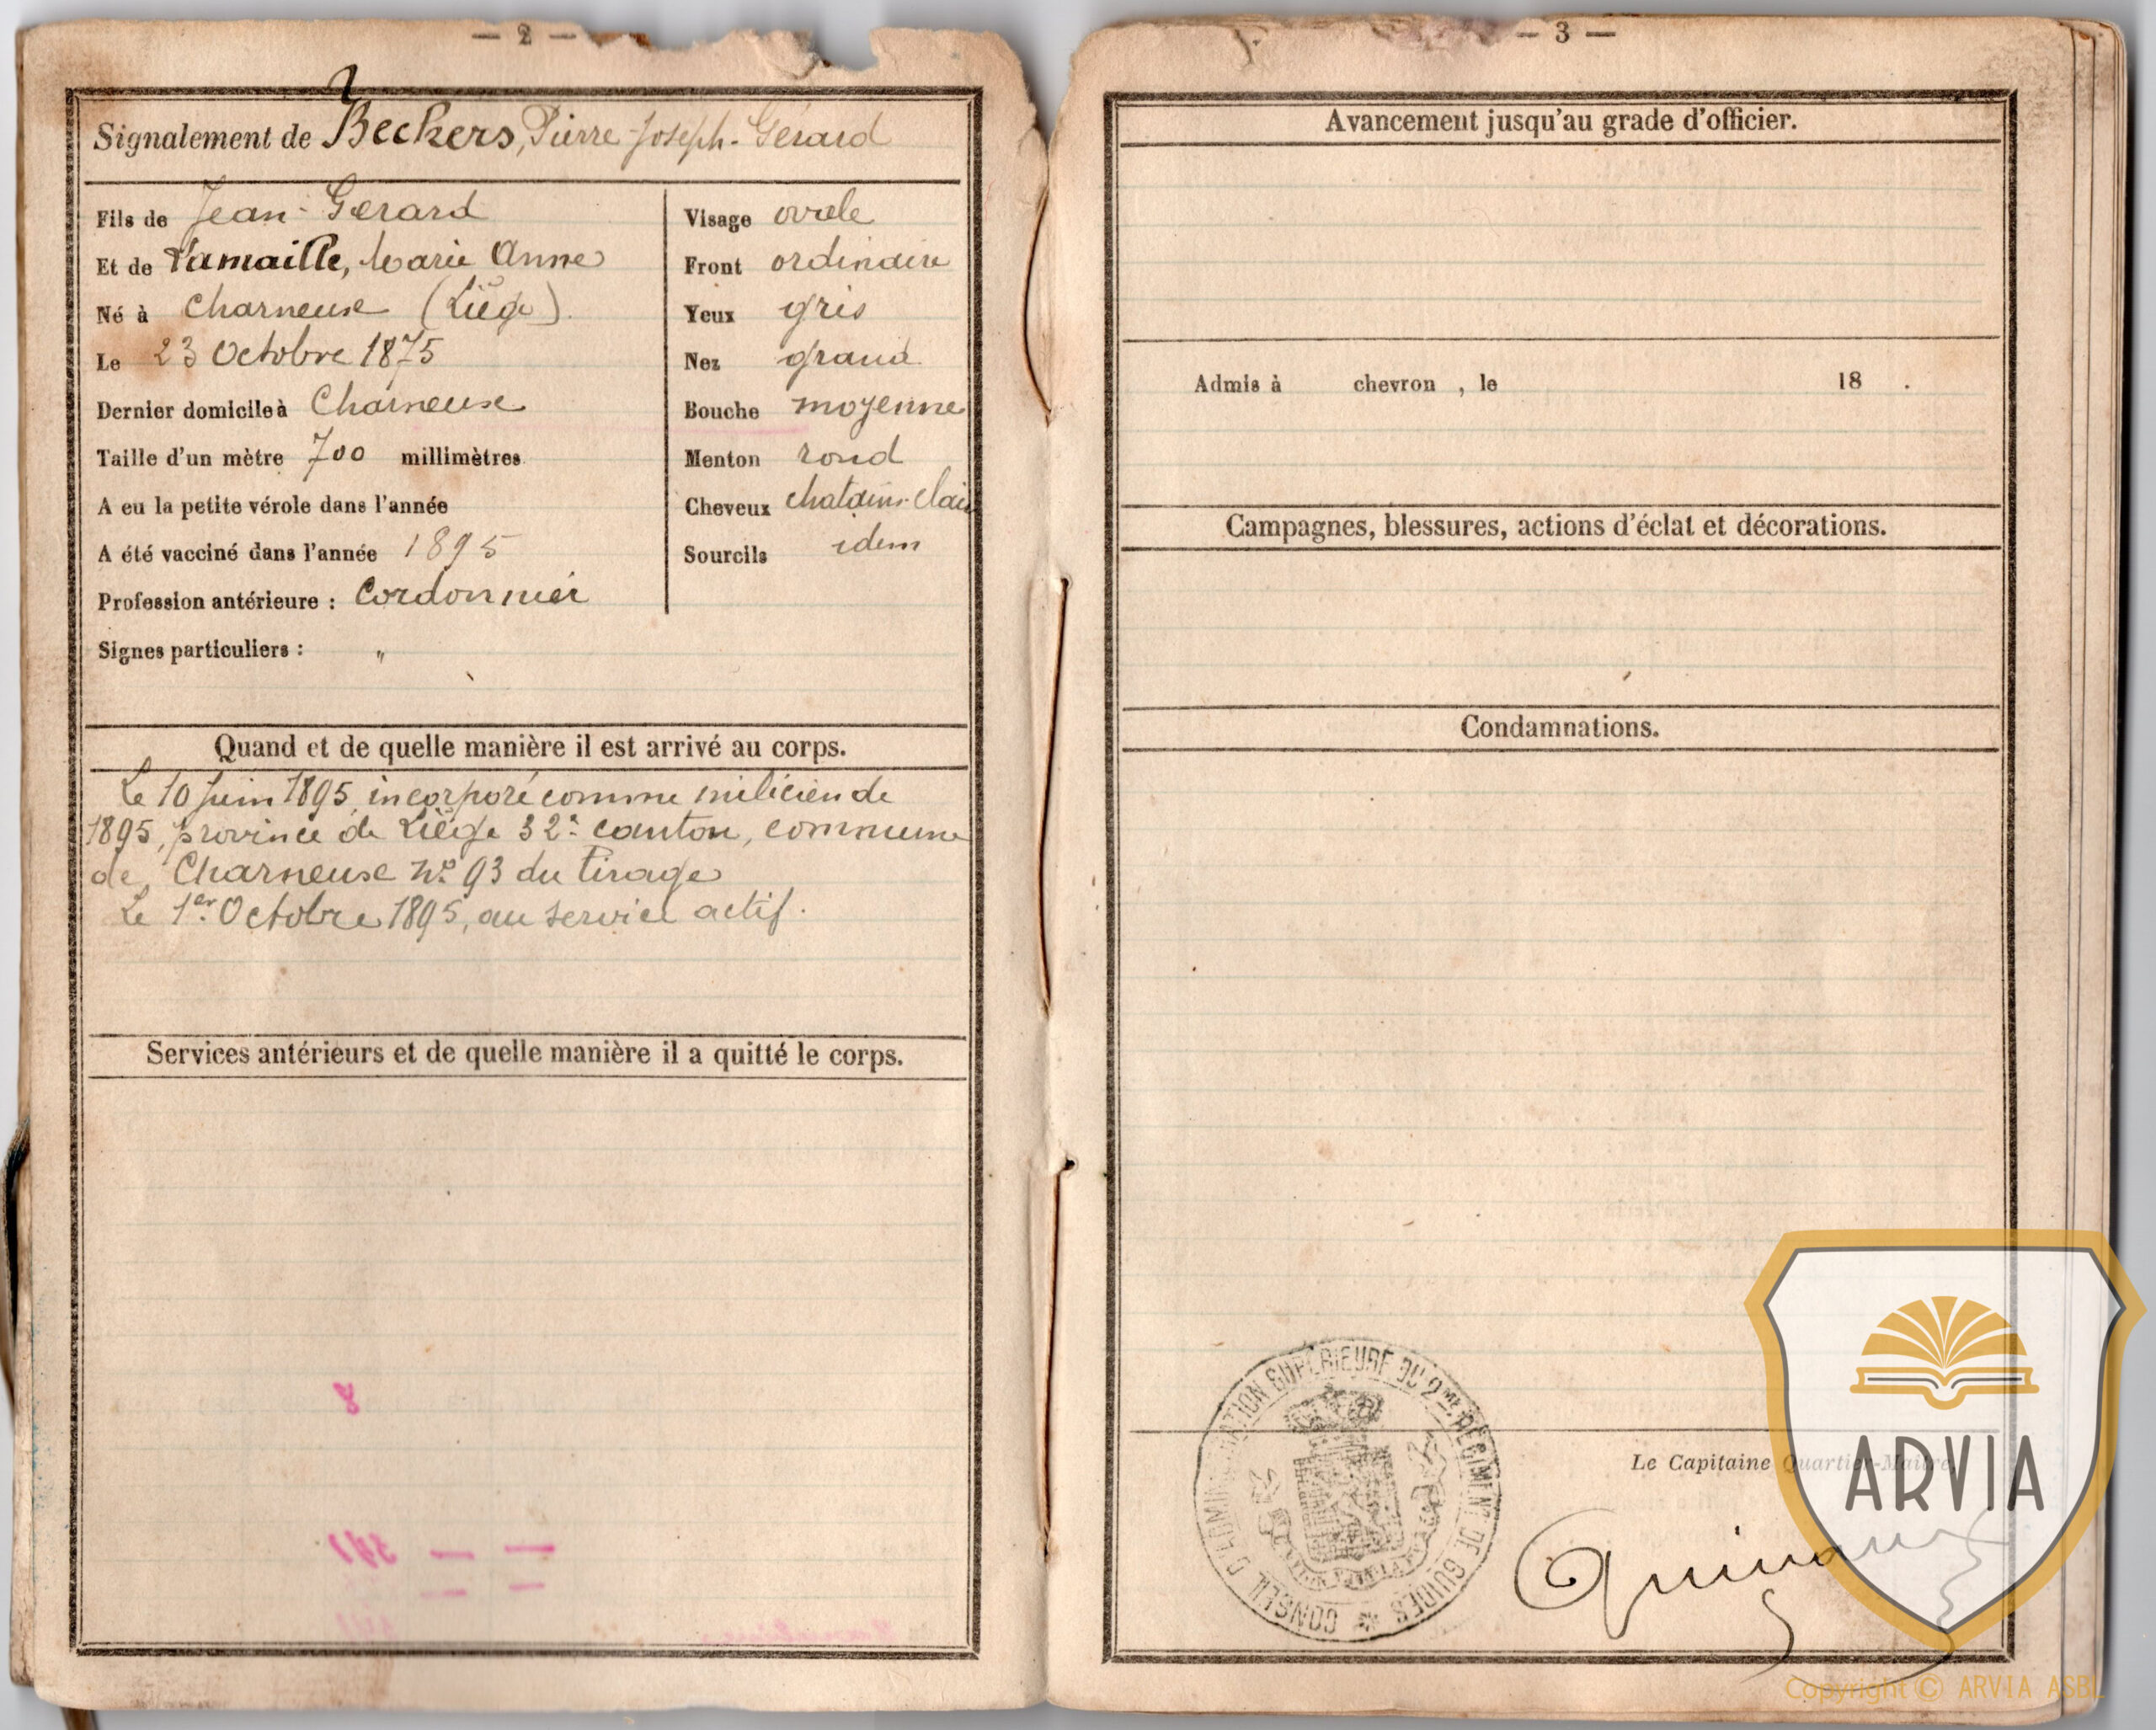 — 2 —
Signalement de Beckers, Pierre-Joseph-Gérard
Fils de Jean-Gérard
Et de Damaille, Marie Anne
Né à Charneuse (Liége).
Le 23 Octobre 1875
Dernier domicile à Charneuse
Taille d'un mètre 700 millimètres
A eu la petite vérole dans l'année
A été vacciné dans l'année 1895
Profession antérieure : Cordonnier
Signes particuliers : "
Visage ovale
Front ordinaire
Yeux gris
Nez grand
Bouche moyenne
Menton rond
Cheveux chatains-clair
Sourcils idem
Quand et de quelle manière il est arrivé au corps.
Le 10 Juin 1895, incorporé comme milicien de
1895, province de Liége 32e canton, commune
de Charneuse No 93 du tirage
Le 1er Octobre 1895, au service actif.
Services antérieurs et de quelle manière il a quitté le corps.
— 3 —
Avancement jusqu'au grade d'officier.
Admis à chevron , le 18 .
Campagnes, blessures, actions d'éclat et décorations.
Condamnations.
CONSEIL D'ADMINISTRATION SUPÉRIEURE DU 2ME RÉGIMENT DE GUIDES
Le Capitaine Quartier-Maître,
ARVIA
Copyright © ARVIA ASBL